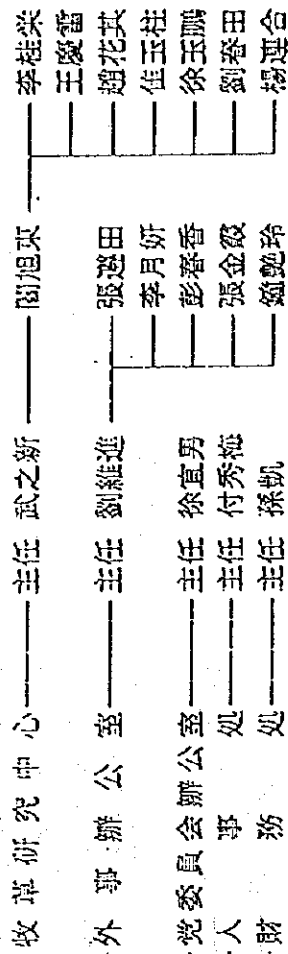 牧草研究中心 主任 武之新 閻旭東 李桂榮
王慶雷
趙花其
佳玉柱
徐玉鵬
劉春田
楊連合
外事辦公室 主任 劉維進 張遜田
李月姸
彭春香
張金霞
艷玲
党委員会辦公室 主任 徐宜男
人事処 主任 付秀梅
財務処 主任 孫凱